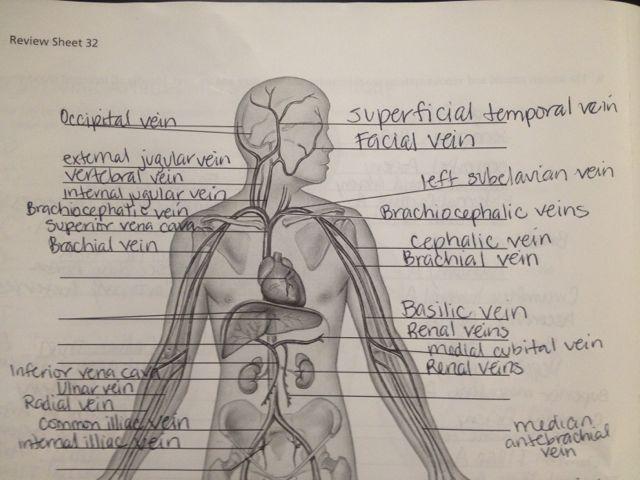 Review Sheet 32
Occipital vein
superficial temporal vein
Facial vein
external jugular vein
vertebral vein
internal jugular vein
left subclavian vein
Brachiocephatic vein
Brachiocephalic veins
superior vena cava
Brachial vein
cephalic vein
Brachial vein
Basilic vein
Renal veins
medial cubital vein
Inferior vena cava
Renal veins
Ulnar vein
Radial vein
common illiac vein
internal illiac vein
median
antebrachial
vein